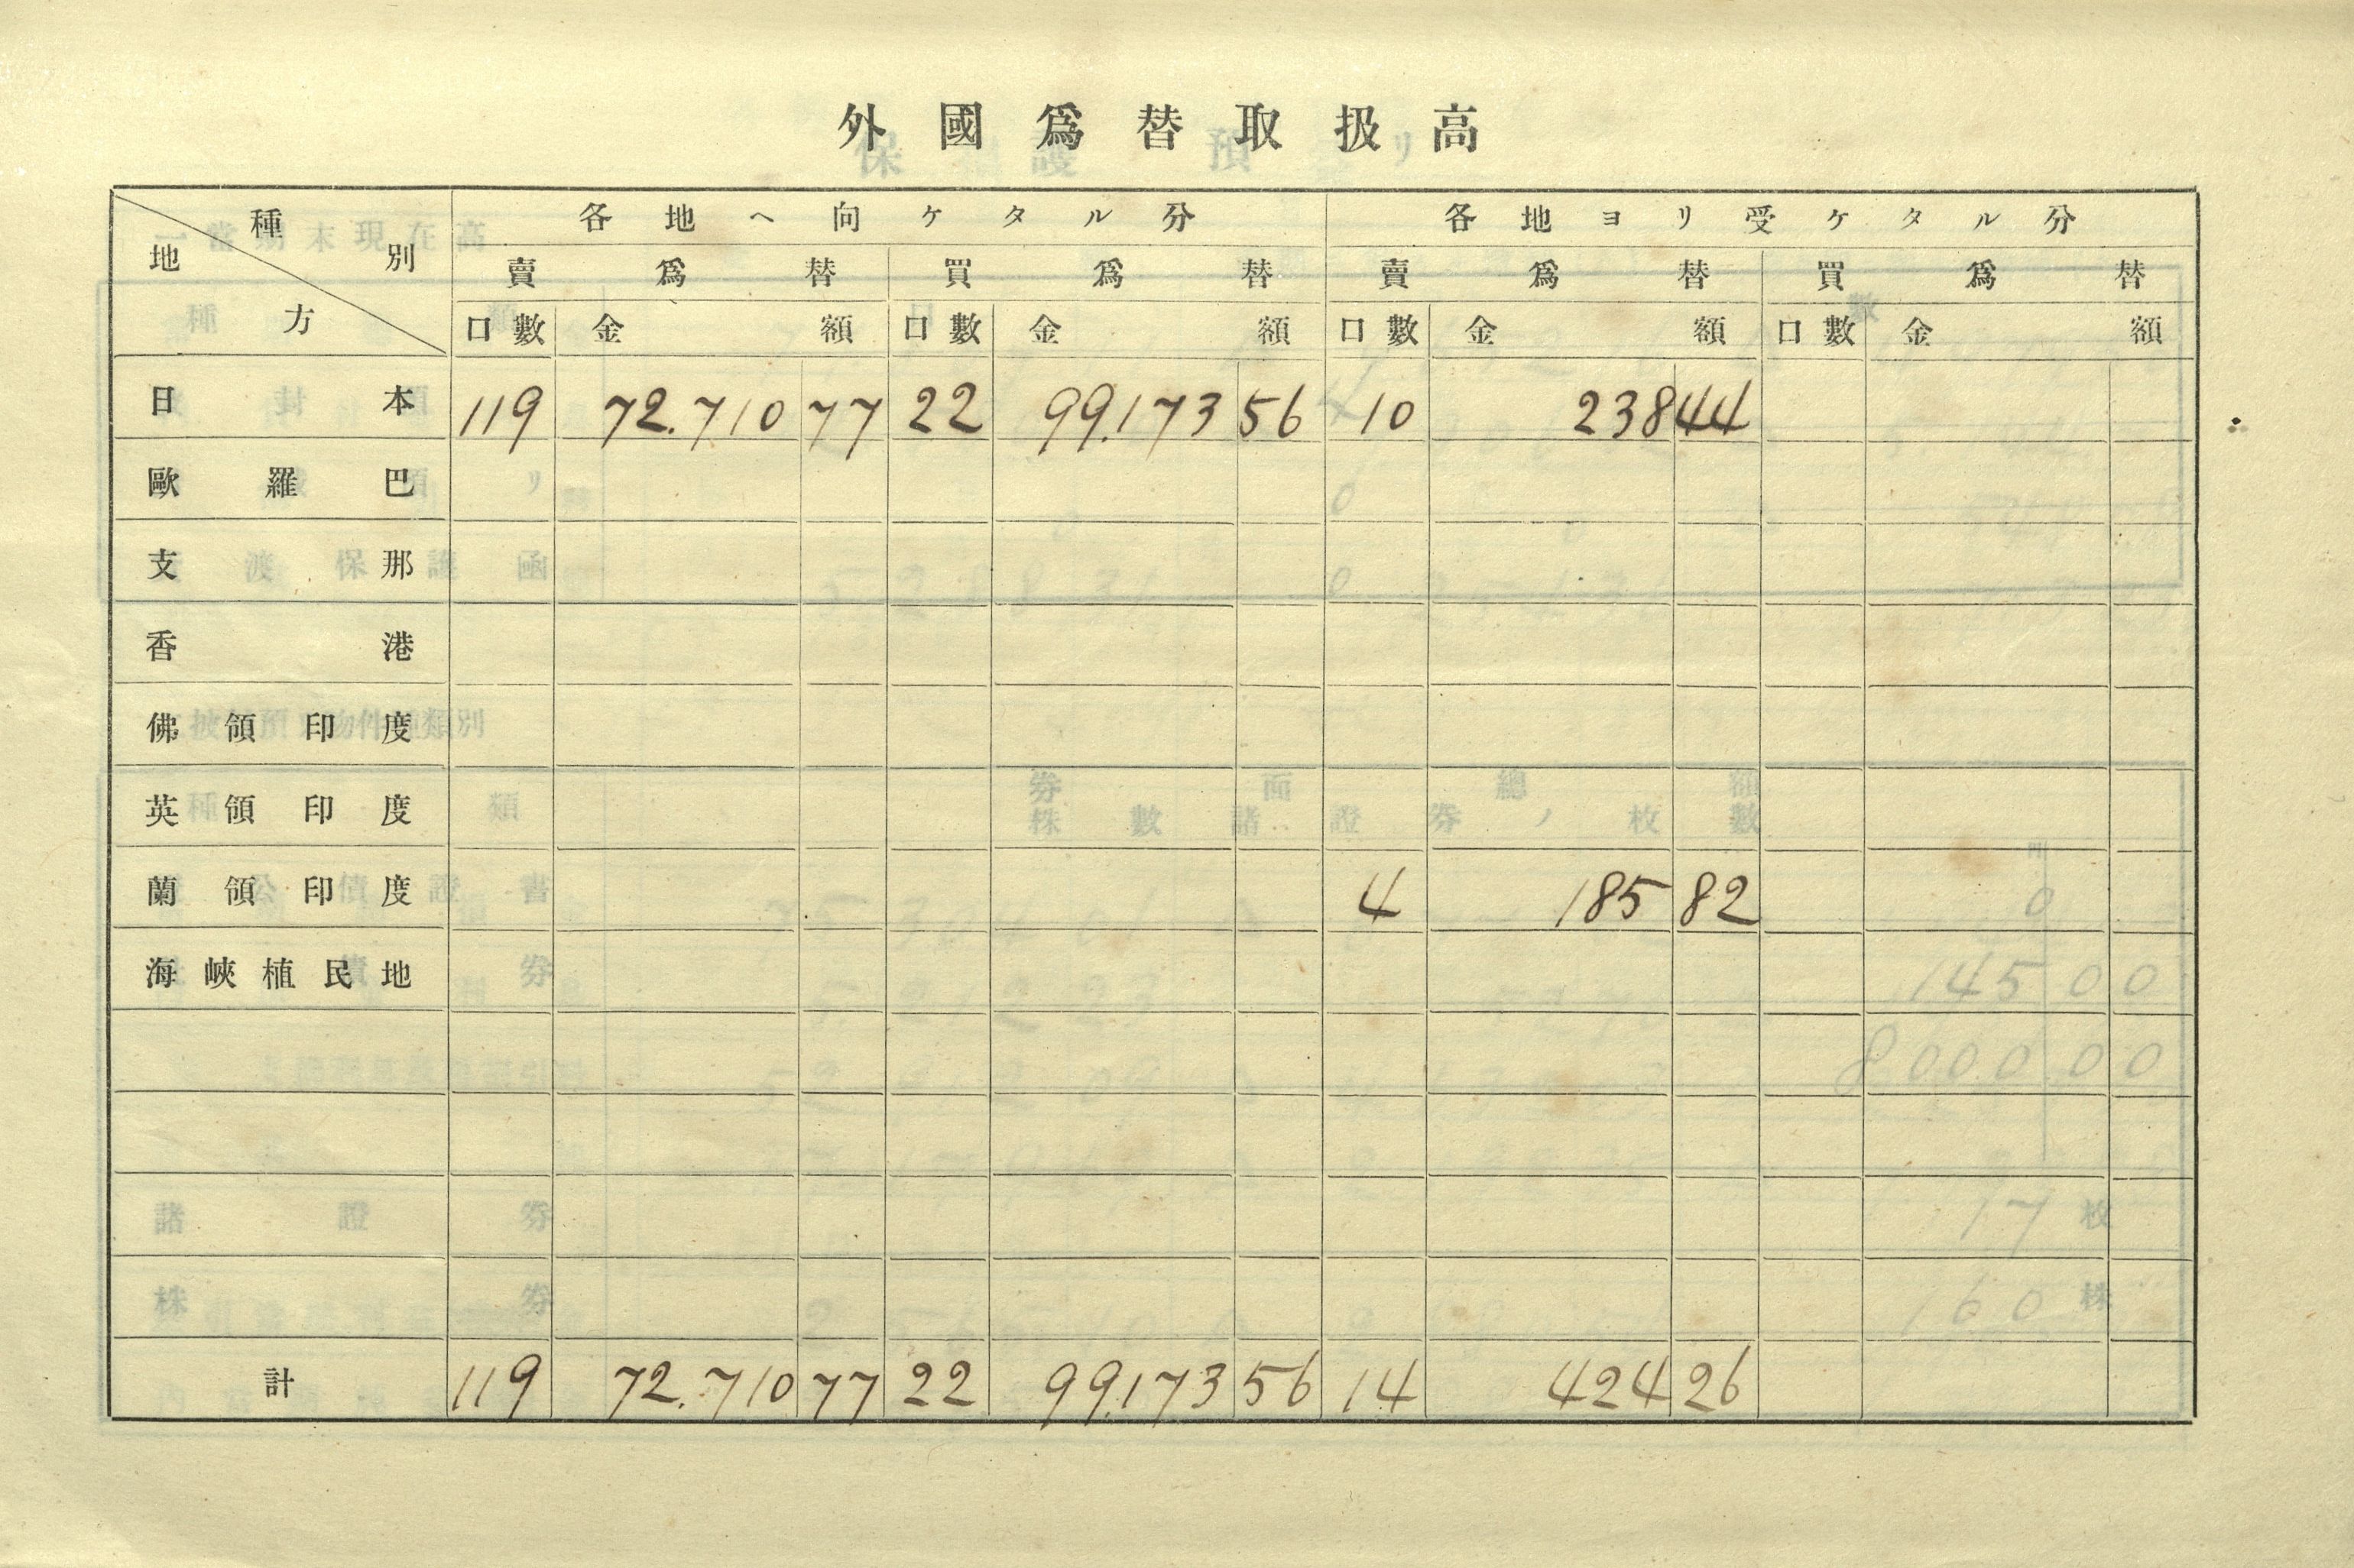 外國爲替取扱高
種別 地方 各地ヘ向ケタル分 各地ヨリ受ケタル分
賣爲替 買爲替 賣爲替 買爲替
口數 金額 口數 金額 口數 金額 口數 金額
日本 119 72.710 77 22 99.173 56 10 238 44
歐羅巴
支那
香港
佛領印度
英領印度
蘭領印度 4 185 82
海峽植民地
計 119 72.710 77 22 99.173 56 14 424 26